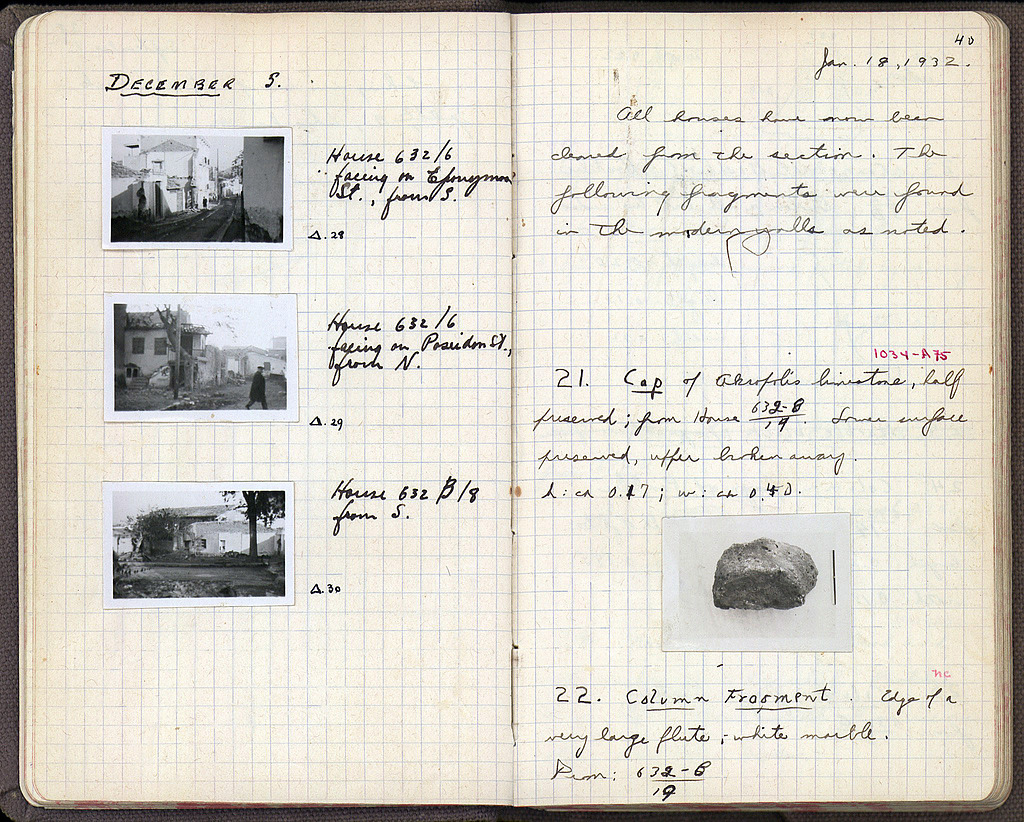 DECEMBER 5.
House 632/6
facing on Eponymon
St., from S.
Δ.28
House 632/6
facing on Poseidon St.,
from N.
Δ.29
House 632 B/8
from S.
Δ.30
40
Jan. 18, 1932.
All houses have now been
cleared from the section. The
following fragments were found
in the modern walls as noted.
1034-A75
21. Cap of Akropolis limestone, half
preserved; from House 632-B/19. Lower surface
preserved, upper broken away.
h: ca 0.17; w: ca 0.40.
nc
22. Column Fragment. Edge of a
very large flute; white marble.
From: 632-B/19